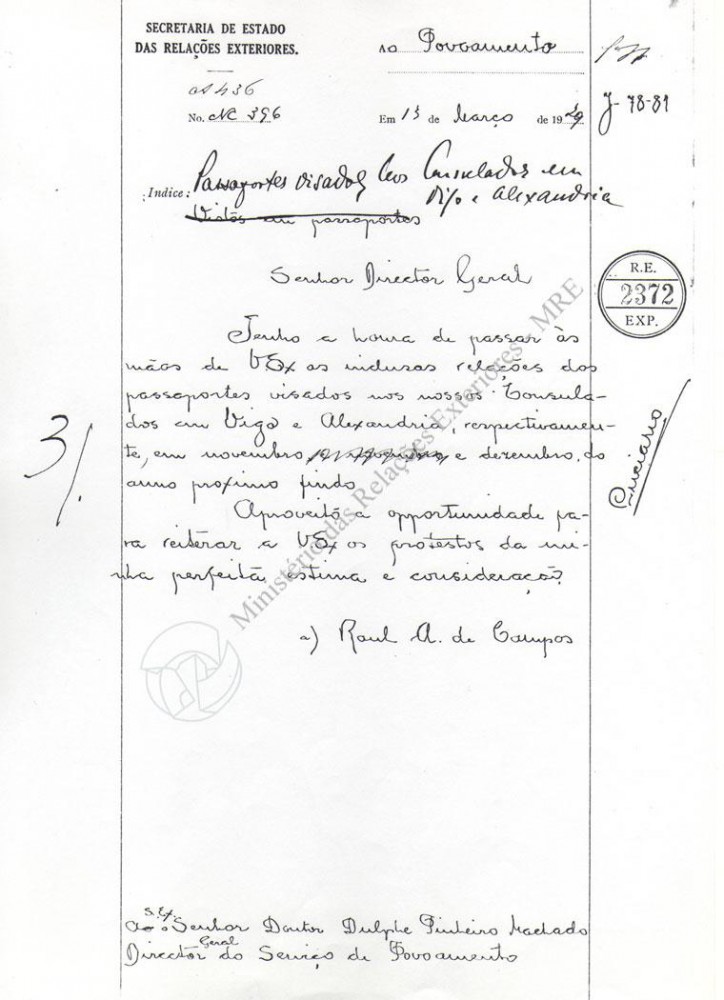 SECRETARIA DE ESTADO
DAS RELAÇÕES EXTERIORES.
AO Povoamento
No. NC 396
Em 13 de Março de 1929
J-78-81
Indice: Passaportes visados nos Consulados em
Vigo e Alexandria
Vistos em passaportes
Senhor Director Geral
R.E.
2372
EXP.
Tenho a honra de passar às
mãos de VEx as inclusas relações dos
passaportes visados nos nossos Consula-
dos em Vigo e Alexandria, respectivamen-
te, em novembro e dezembro do
anno proximo findo.
Aproveito a opportunidade pa-
ra reiterar a VEx os protestos da mi-
nha perfeita estima e consideração.
a) Raul A. de Campos
3/.
Ministério das Relações Exteriores - MRE
S. Ex.
Ao Senhor Doutor Dulphe Pinheiro Machado
Director Geral do Serviço de Povoamento